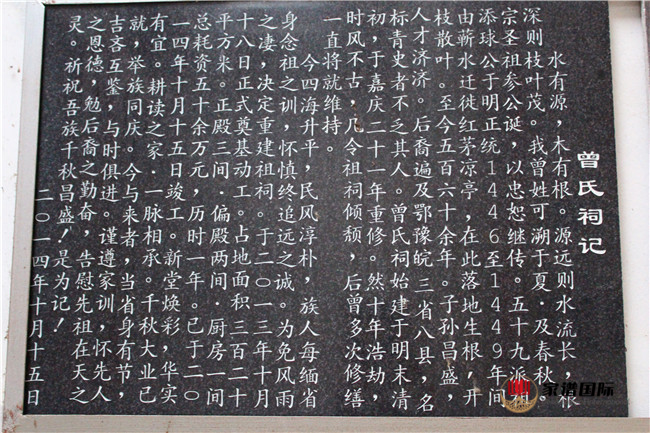 曾氏祠记
水有源，木有根。源远则水流长，根
深则枝叶茂。我曾姓可溯于夏·及春秋，
宗圣祖参公诞，以忠恕继传。五十九派祖
添球公于明正统1446至1449年间
由蕲水迁徙红茅凉亭，在此落地生根，开
枝散叶。至今五百六十余年。子孙昌盛，
人才济济。后裔遍及鄂豫皖三省八县，名
标青史者不乏其人。曾氏祠始建于明末清
初，于嘉庆二十一年重修。然十年浩劫，
时风不古，几令祖祠倾颓，后曾多次修缮
一直将就维持。
今四海升平，民风淳朴，族人每缅省
身念祖之训，怀慎终追远之诚。为免风雨
之凄，决定重建祖祠。于二〇一三年十月
十八日正式奠基动工。占地面积三百二十
平方米。正殿三间·偏殿两间·厨房一间
总耗资五十余万元，历时一年。已于二〇
一四年十月十五日竣工。新堂焕彩，华实
有宜。耕读之家·一脉相承。千秋大业已
就，举族同庆。今与来者，当省身有节，
吉吝互鉴，与时俱进。谨遵家训，怀先人
之恩德，勉后裔之勤奋，告慰先祖在天之
灵。祈祝吾族千秋昌盛！是为记！
二〇一四年十月十五日
家谱国际